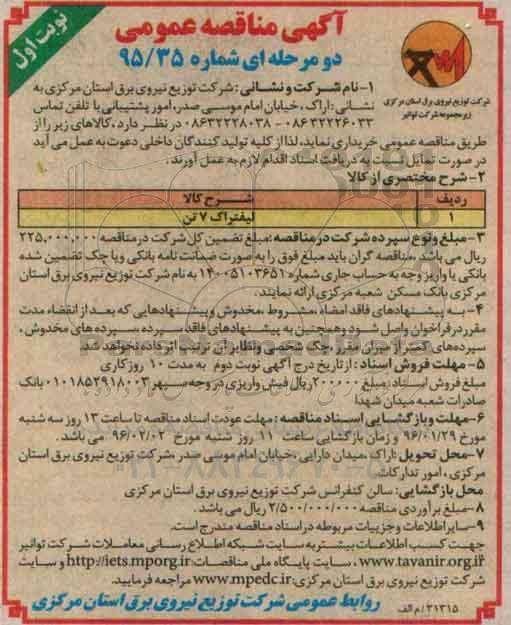 نوبت اول
آگهی مناقصه عمومی
دو مرحله ای شماره ۹۵/۳۵
شرکت توزیع نیروی برق استان مرکزی
زیرمجموعه شرکت توانیر
۱-نام شرکت و نشانی : شرکت توزیع نیروی برق استان مرکزی به
نشانی : اراک ، خیابان امام موسی صدر، امور پشتیبانی با تلفن تماس
۰۸۶۳۲۲۲۶۰۳۳ - ۰۸۶۳۲۲۲۸۰۳۸ در نظر دارد ، کالاهای زیر را از
طریق مناقصه عمومی خریداری نماید، لذا از کلیه تولید کنندگان داخلی دعوت به عمل می آید
در صورت تمایل نسبت به دریافت اسناد اقدام لازم به عمل آورند .
۲- شرح مختصری از کالا
ردیف شرح کالا
۱ لیفتراک ۷ تن
۳-مبلغ و نوع سپرده شرکت در مناقصه :مبلغ تضمین کل شرکت در مناقصه ۲۲۵,۰۰۰,۰۰۰
ریال می باشد ،مناقصه گران باید مبلغ فوق را به صورت ضمانت نامه بانکی ویا چک تضمین شده
بانکی یا واریز وجه به حساب جاری شماره ۱۴۰۰۵۱۰۳۶۵۱ به نام شرکت توزیع نیروی برق استان
مرکزی بانک مسکن شعبه مرکزی ارائه نمایند.
۴- به پیشنهادهای فاقد امضاء ،مشروط ،مخدوش وپیشنهادهایی که بعد از انقضاء مدت
مقرر در فراخوان واصل شود و همچنین به پیشنهادهای فاقد سپرده ،سپرده های مخدوش ،
سپرده‌های کمتر از میزان مقرر ،چک شخصی ونظایر آن ترتیب اثر داده نخواهد شد.
۵- مهلت فروش اسناد : از تاریخ درج آگهی نوبت دوم به مدت ۱۰ روز کاری
مبلغ فروش اسناد : مبلغ ۲۰۰۰۰۰ ریال فیش واریزی در وجه سپهر ۰۱۰۱۸۵۲۹۱۸۰۰۳ بانک
صادرات شعبه میدان شهدا
۶-مهلت وبازگشایی اسناد مناقصه : مهلت عودت اسناد مناقصه تا ساعت ۱۳ روز سه شنبه
مورخ ۹۶/۰۱/۲۹ و زمان بازگشایی ساعت ۱۱ روز شنبه مورخ ۹۶/۰۲/۰۲ می باشد .
۷-محل تحویل :اراک ،میدان دارایی ،خیابان امام موسی صدر ،شرکت توزیع نیروی برق استان
مرکزی ، امور تدارکات
محل بازگشایی: سالن کنفرانس شرکت توزیع نیروی برق استان مرکزی
۸-مبلغ برآوردی مناقصه ۲/۵۰۰/۰۰۰/۰۰۰ ریال می باشد.
۹-سایر اطلاعات وجزییات مربوطه در اسناد مناقصه مندرج است.
جهت کسب اطلاعات بیشتر به سایت شبکه اطلاع رسانی معاملات شرکت توانیر
www.tavanir.org.ir ، سایت پایگاه ملی مناقصات:http://iets.mporg.ir و سایت
شرکت توزیع نیروی برق استان مرکزی:www.mpedc.ir مراجعه فرمایید.
روابط عمومی شرکت توزیع نیروی برق استان مرکزی
۳۱۳۱۵/م الف